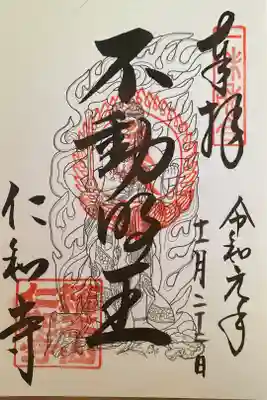 奉拝
令和元年
十一月二十二日
不動明王
仁和寺